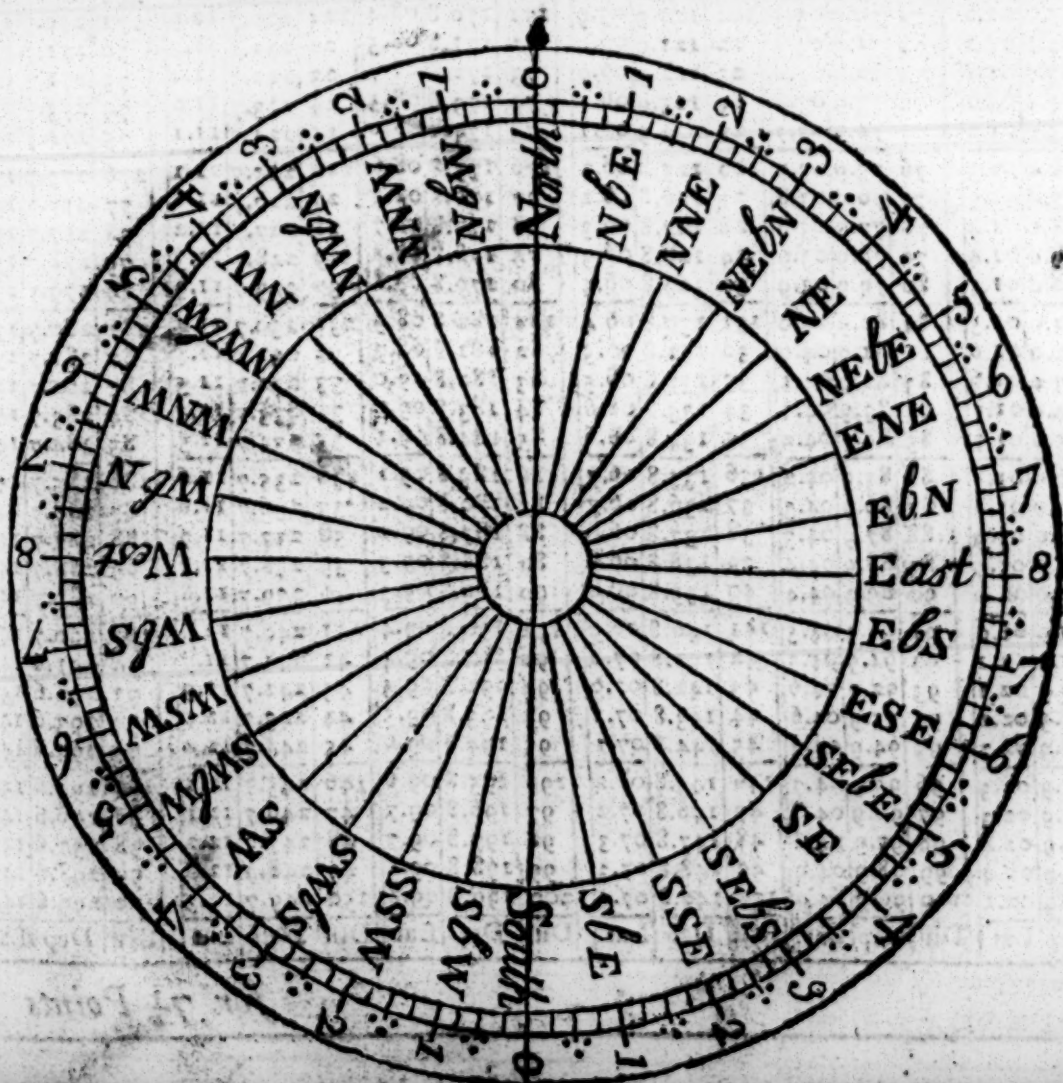 0
1
2
3
4
5
6
7
8
7
6
5
4
3
2
1
0
1
2
3
4
5
6
7
8
7
6
5
4
3
2
1
North
NbE
NNE
NEbN
NE
NEbE
ENE
EbN
East
EbS
ESE
SEbE
SE
SEbS
SSE
SbE
South
SbW
SSW
SWbS
SW
SWbW
WSW
WbS
West
WbN
WNW
NWbW
NW
NWbN
NNW
NbW
Points